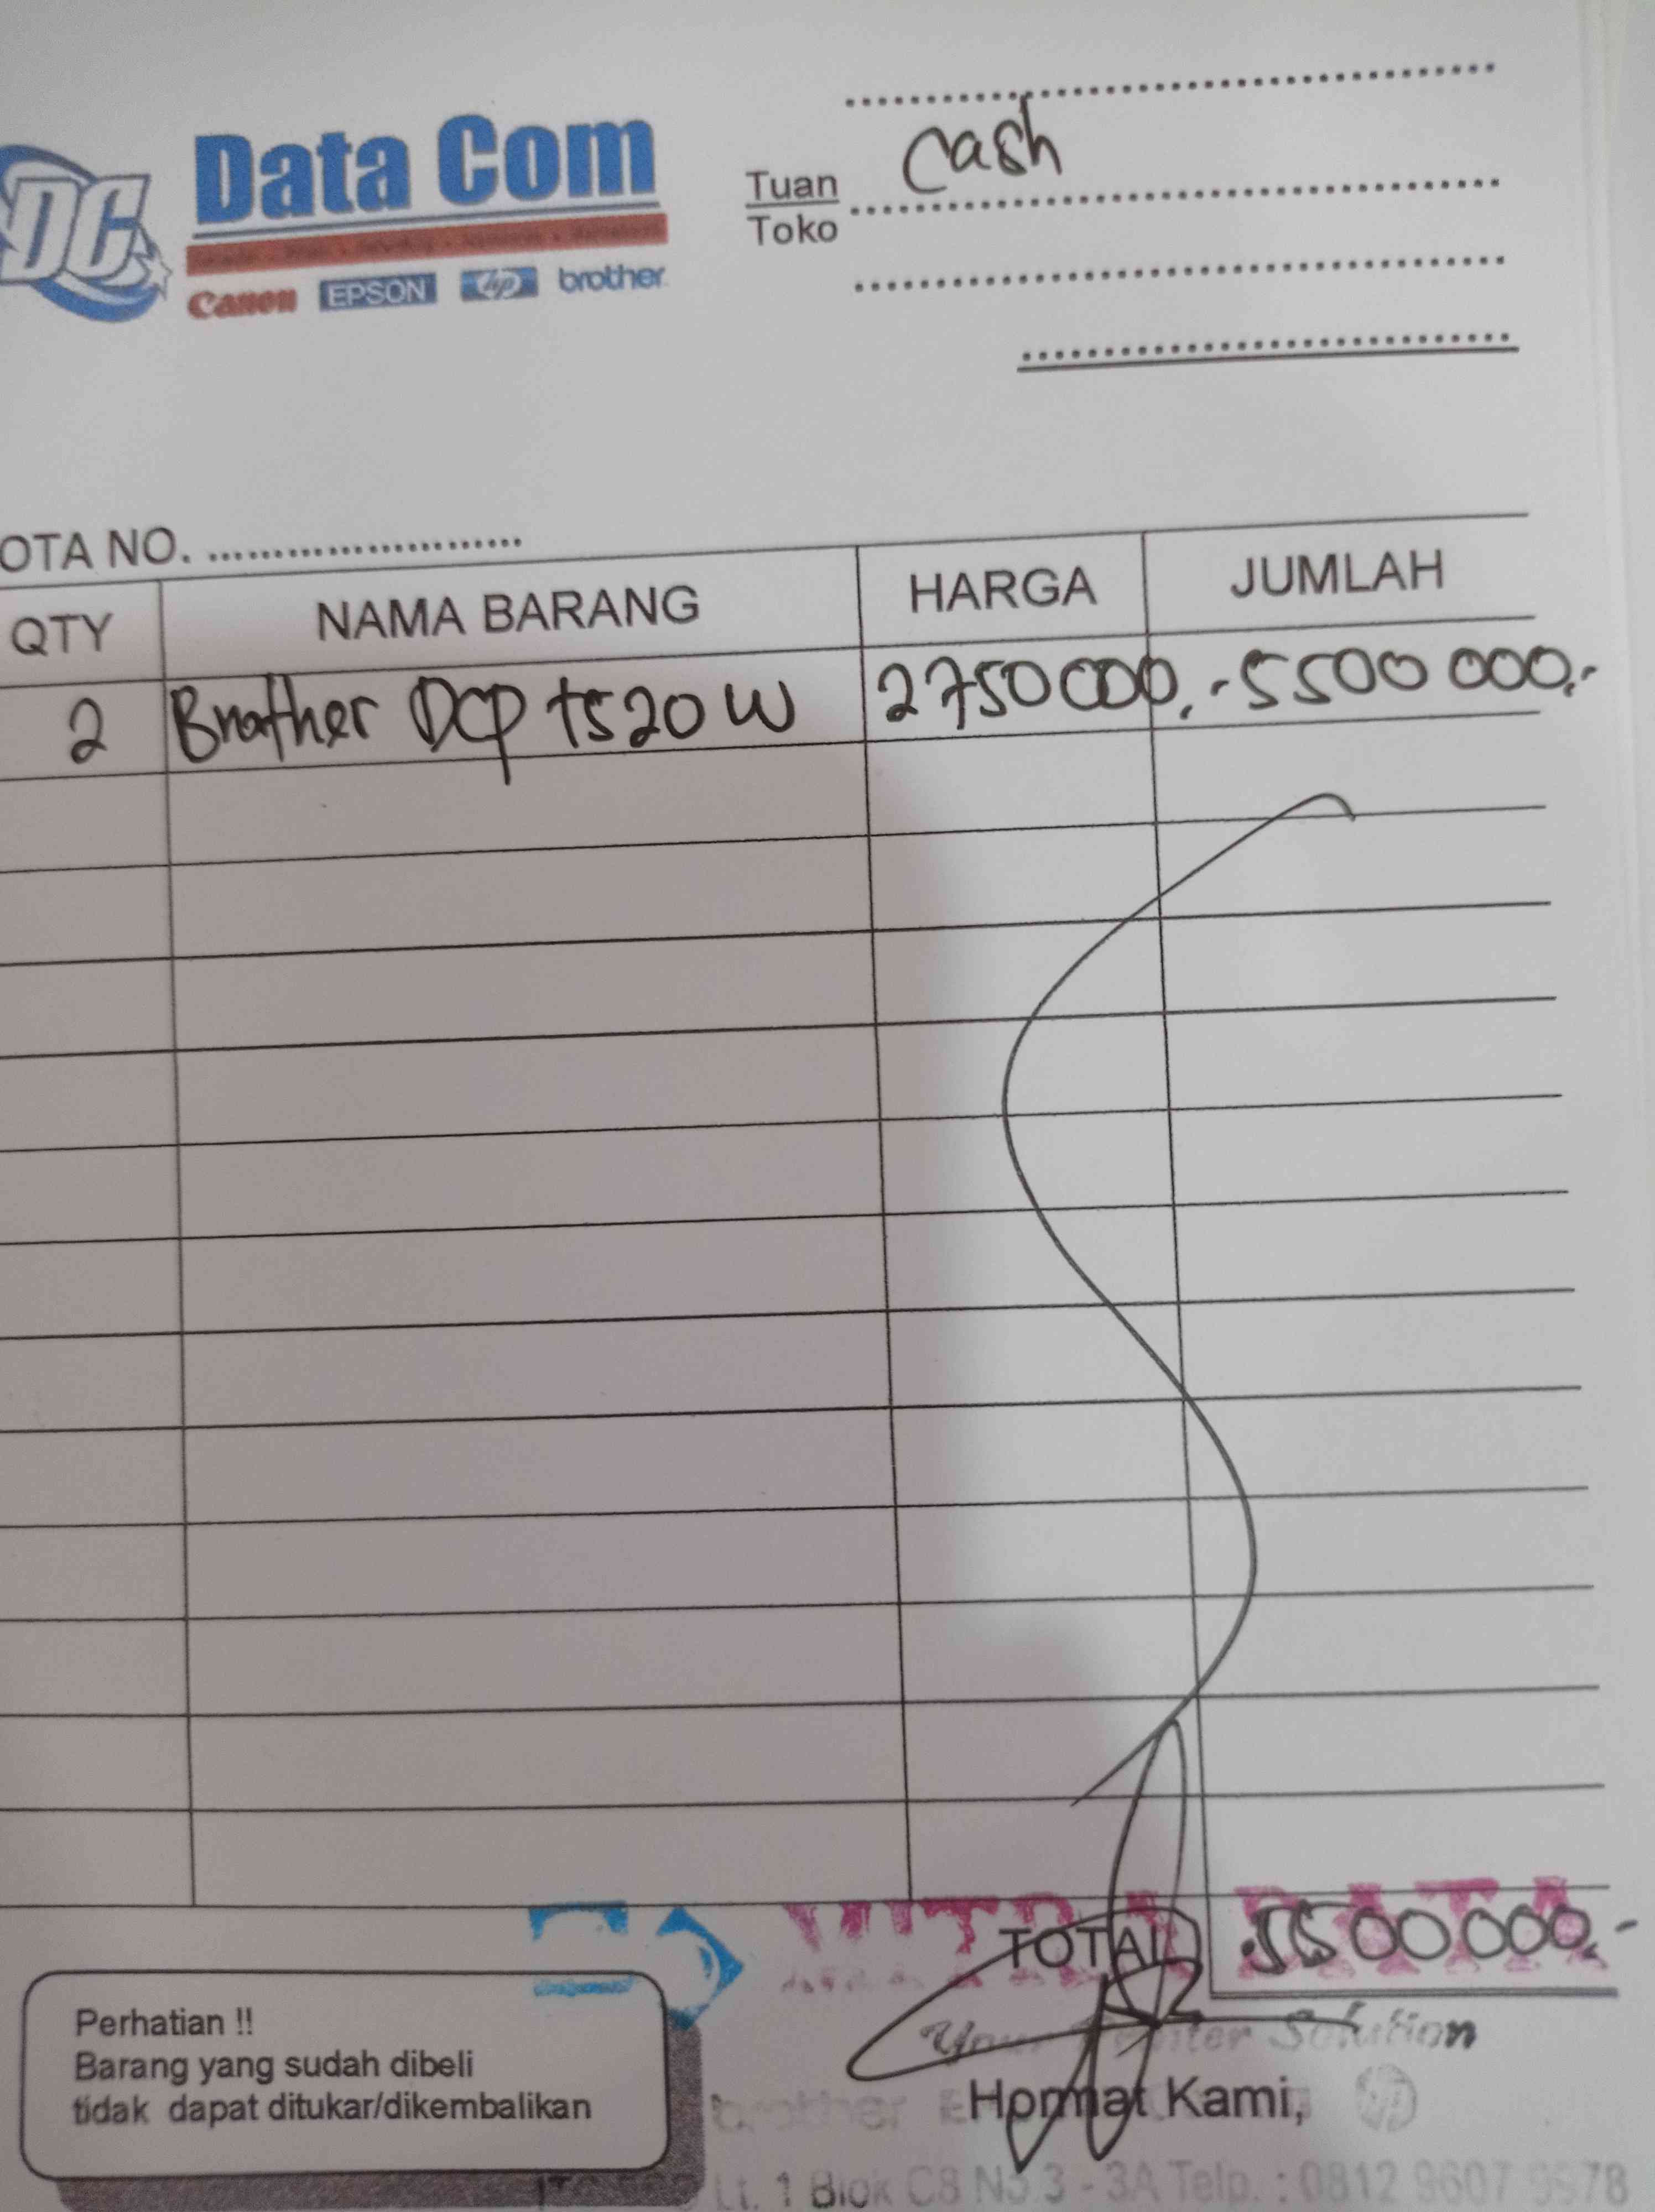 DC Data Com
Canon EPSON hp brother
Tuan Cash
Toko
OTA NO.
QTY NAMA BARANG HARGA JUMLAH
2 Brother DCP t520W 2750000,- 5500 000,-
TOTAL 5500000,-
Your Printer Solution
Perhatian !!
Barang yang sudah dibeli
tidak dapat ditukar/dikembalikan
Hormat Kami,
brother
Lt. 1 Blok C8 No.3 - 3A Telp. : 0812 9607 9978